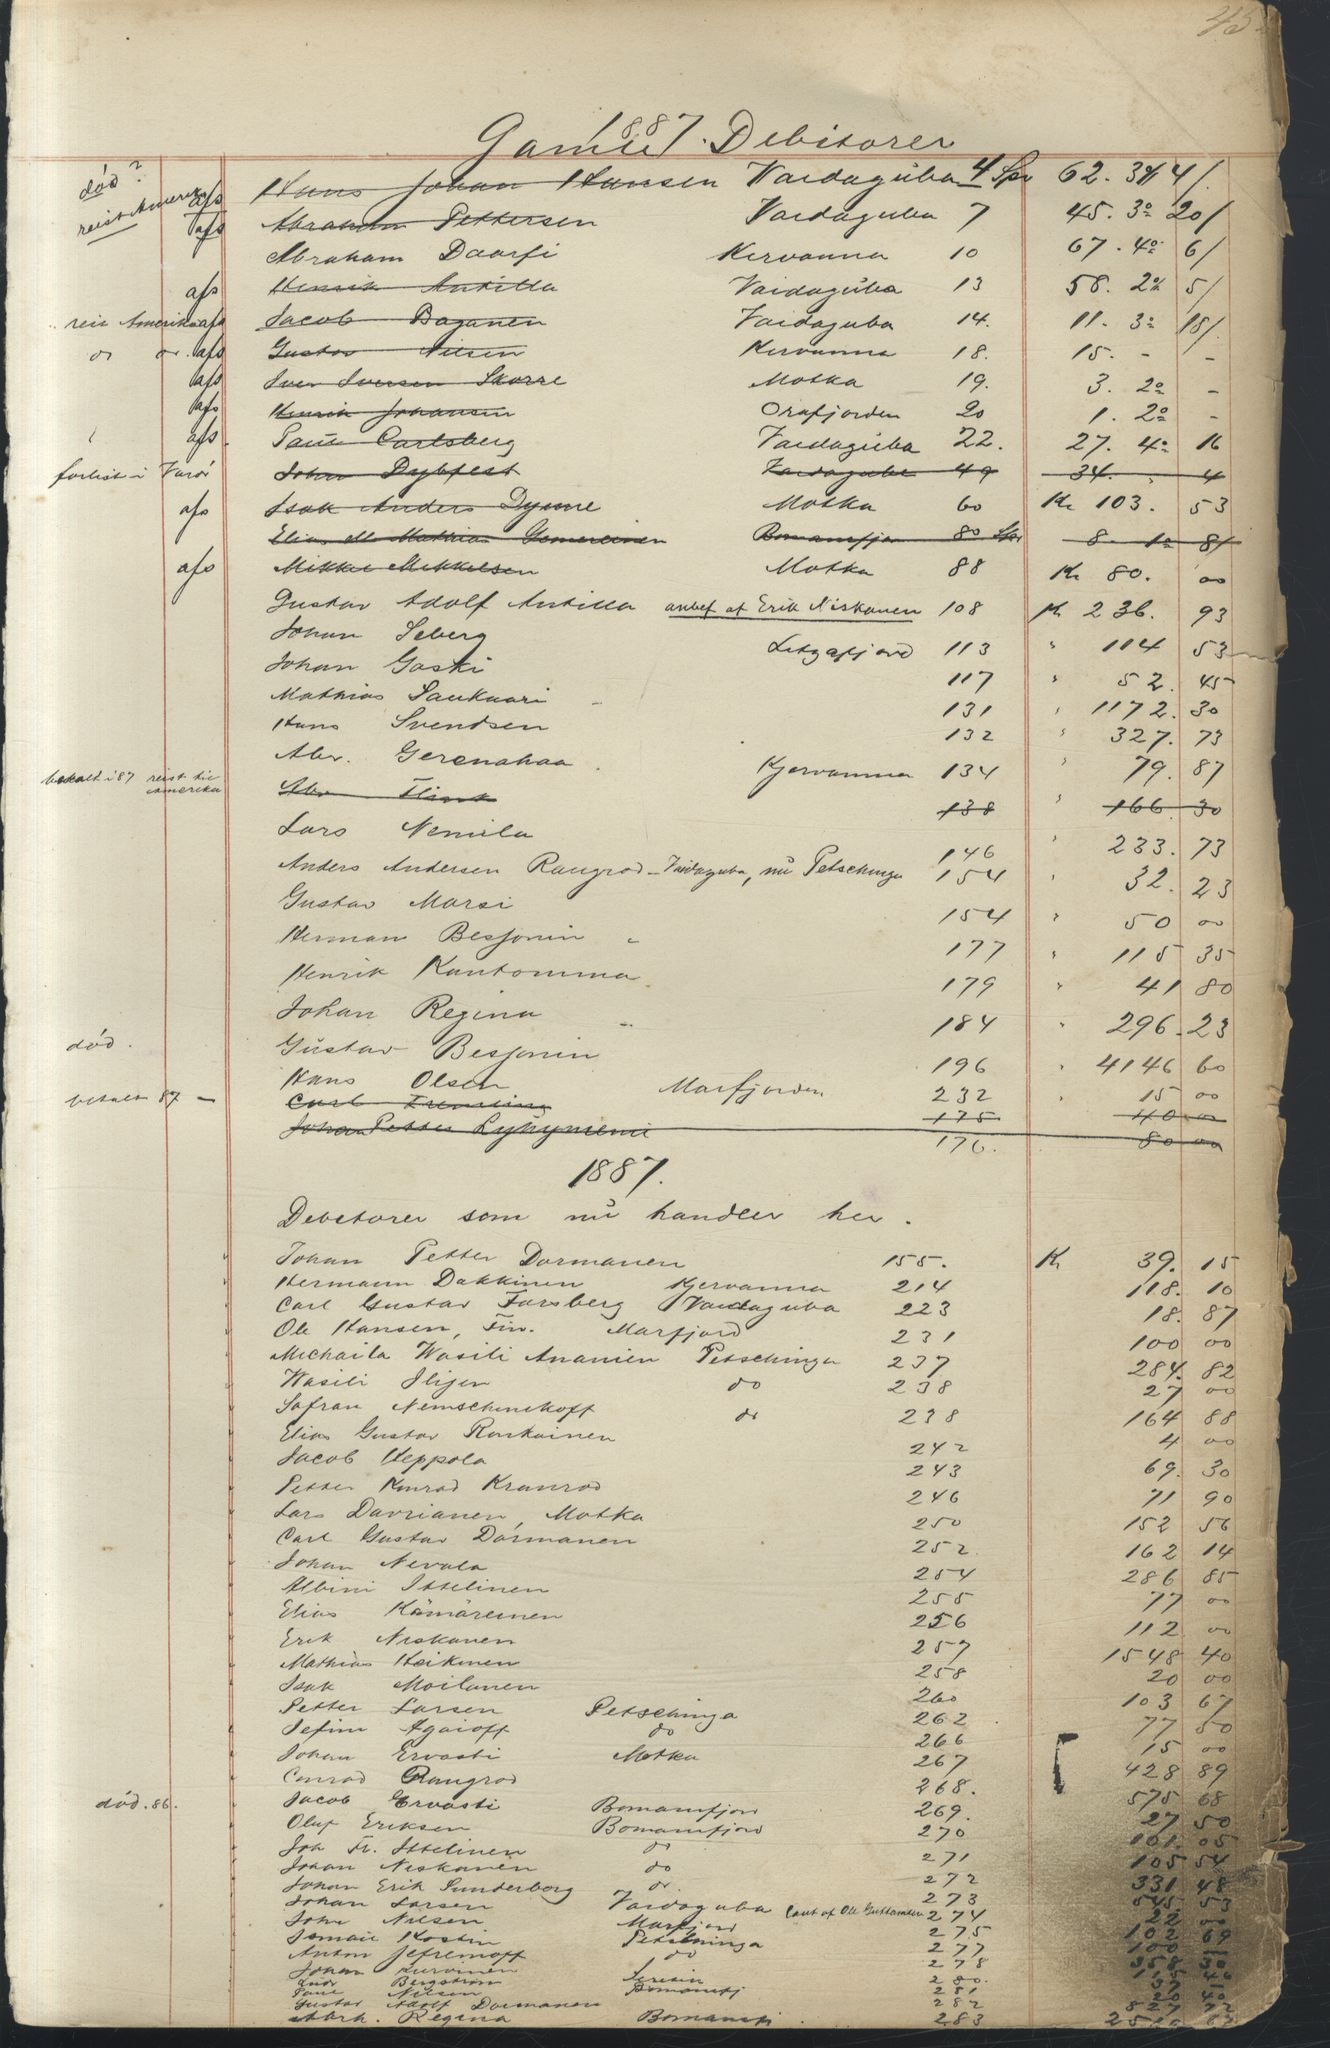 45
1887.
Gamle Debitorer
død? afs Hans Johan Hansen Vaidaguba 4 Spd 62. 3 4/
reist Amerika afs Abraham Pettersen Vaidaguba 7 45. 3 20/
Abraham Daarfi Kervanna 10 67. 4 6/
afs Henrik Antilla Vaidaguba 13 58. 2 5/
reist Amerika afs Jacob Baganen Vaidaguba 14. 11. 3 18/
do do. afs Gustav Nilsen Kervanna 18. 15. - -
afs Iver Iversen Skorre Motka 19. 3. 2 -
afs Henrik Johansen Orafjorden 20 1. 2 -
afs. Paul Carlsberg Vaidaguba 22. 27. 4 16
forlist i Vardö John Dybfest Vaidaguba 49 34. . 4
afs Isak Anders Dynne Motka 60 Kr 103. 53
Elias Mathias Bomansfjor 80 Spd 8. 1 8/
afs Mikkel Mikkelsen Motka 88 Kr 80. 00
Gustav Adolf Antilla anbef af Erik Niskanen 108 Kr 236. 93
Johan Seberg Litzafjord 113 " 114 53
Johan Gaski 117 " 52. 45
Mathias Saukuari 131 " 1172. 30
Hans Svendsen 132 " 327. 73
Abr. Gerenahaa Kjervanna 134 " 79. 87
betalt i 87 reist til Amerika Abr Flink 138 " 166 30
Lars Nemila 146 " 233. 73
Anders Andersen Rangrod - Vaidaguba, nu Petschinga 154 " 32. 23
Gustav Marsi 154 " 50 00
Herman Besjonin 177 " 115 35
Henrik Kantomma 179 " 41 80
Johan Regina 184 " 296. 23
død. Gustav Besjonin 196 " 4146 60
Hans Olsen Marfjorden 232 " 15 00
betalt 87 - Carl Fremling 175 40 00
Johan Petter Lyhyniemi 176. 80 00
1887.
Debetorer som nu handler her.
Johan Petter Dormanen 155. Kr 39. 15
Hermann Dakkinen Kjervanna 214 118. 10
Carl Gustav Forsberg Vaidaguba 223 18. 87
Ole Hansen, Fin. Marfjord 231 100 00
Michaila Wasili Ananien Petschinga 237 284. 82
Wasili Ilijen do 238 27 00
Safran Nemschinikoff do 238 164 88
Elias Gustav Ronkainen 242 4 00
Jacob Heppola 243 69. 30
Petter Konrad Kranrod 246 71 90
Lars Davrianen, Motka 250 152 56
Carl Gustav Dormanen 252. 162 14
Johan Nevala 254 286 85
Albini Ittelinen 255 77 00
Elias Kämäreinen 256 112 00
Erik Niskanen 257 1548 40
Mathias Heikinen 258 20 00
Isak Moilanen 260 103 67
Petter Larsen Petschinga 262 77 50
Jefim Agaioff do 266 15 00
Johan Ervasti Motka 267 428 89
Conrad Rangrod 268. 575 68
død. 86. Jacob Ervasti Bomansfjor 269. 27 50
Oluf Eriksen Bomansfjord 270 101. 05
Joh Fr. Ittelinen do 271 105 54
Johan Niskanen do 272 331 48
Johan Erik Sunderborg do. 273 545 53
Johan Larsen Vaidaguba Caut af Ole Guttormsen 274
John Nilsen Marfjord 275 102 69
Ismail Kostin Petschinga 277
Anton Jefremoff do 278
Johan Lurvinen 280.
Andr Bergstrøm 281
Paul Nilsen Bomansfj 282
Gustav Adolf Dormanen 283
Abrh. Regina Bomansfj